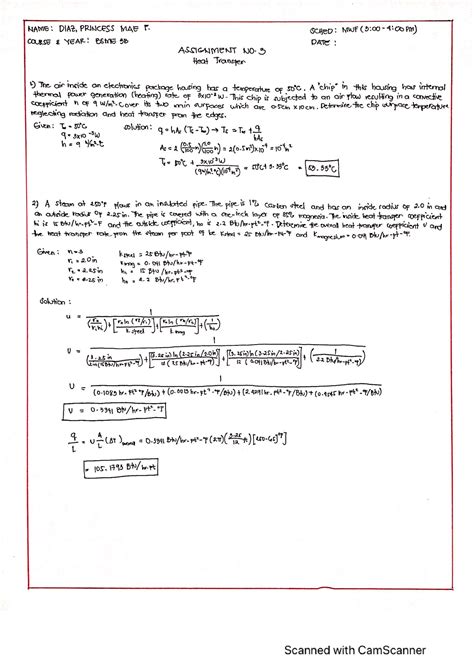 NAME: DIAZ, PRINCESS MAE T.
SCHED: MWF (3:00 - 4:00 PM)
COURSE & YEAR: BSME 3D
DATE:
ASSIGNMENT NO. 3
Heat Transfer
1) The air inside an electronics package housing has a temperature of 50°C. A "chip" in this housing has internal
thermal power generation (heating) rate of 3x10⁻³ W. This chip is subjected to an air flow resulting in a convective
coefficient h of 9 W/m²·C over its two main surfaces which are 0.5cm x 1.0cm. Determine the chip surface temperature
neglecting radiation and heat transfer from the edges.
Given: T∞ = 50°C
q = 3x10⁻³ W
h = 9 W/m²·C
Solution: q = hAs (Ts - T∞) → Ts = T∞ + q/hAs
As = 2 (0.5/100 m)(1.0/100 m) = 2(0.5x10⁻⁴ m²) = 10⁻⁴ m²
Ts = 50°C + 3x10⁻³ W / (9 W/m²·C)(10⁻⁴ m²) = 50°C + 3.33°C = 53.33°C
2) A steam at 250°F flows in an insulated pipe. The pipe is 1% carbon steel and has an inside radius of 2.0 in and
an outside radius of 2.25 in. The pipe is covered with a one-inch layer of 85% magnesia. The inside heat transfer coefficient
hi is 15 Btu/hr-ft²-°F and the outside coefficient, ho is 2.2 Btu/hr-ft²-°F. Determine the overall heat transfer coefficient U and
the heat transfer rate from the steam per foot of
Ksteel = 25 Btu/hr-ft-°F and Kmagnesia = 0.041 Btu/hr-ft-°F.
Given: n = 3
r₁ = 2.0 in
r₂ = 2.25 in
r₃ = 3.25 in
ksteel = 25 Btu/hr-ft-°F
kmag = 0.041 Btu/hr-ft-°F
hi = 15 Btu/hr-ft²-°F
ho = 2.2 Btu/hr-ft²-°F
Solution:
U = 1 / (r₃/r₁hi) + [r₃ ln (r₂/r₁)/ksteel] + [r₃ ln (r₃/r₂)/kmag] + (1/ho)
U = 1
U = 1 / (0.1083 hr-ft²-°F/Btu) + (0.0013 hr-ft²-°F/Btu) + (2.4291 hr-ft²-°F/Btu) + (0.4545 hr-ft²-°F/Btu)
U = 0.3341 Btu/hr-ft²-°F
q/L = U A/L (ΔT)total = 0.3341 Btu/hr-ft²-°F (2π)(3.25/12 ft)[250-65]°F
= 105.1793 Btu/hr-ft
Scanned with CamScanner